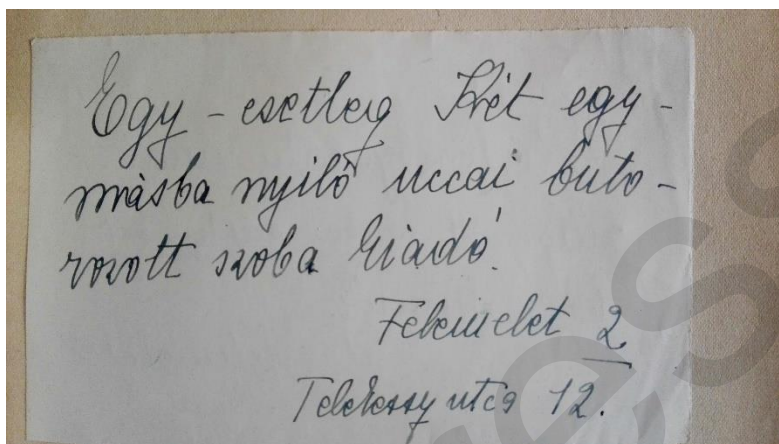 Egy - esetleg Két egy -
másba nyiló uccai búto -
rozott szoba kiadó.
Felemelet 2
Telekessy utca 12.